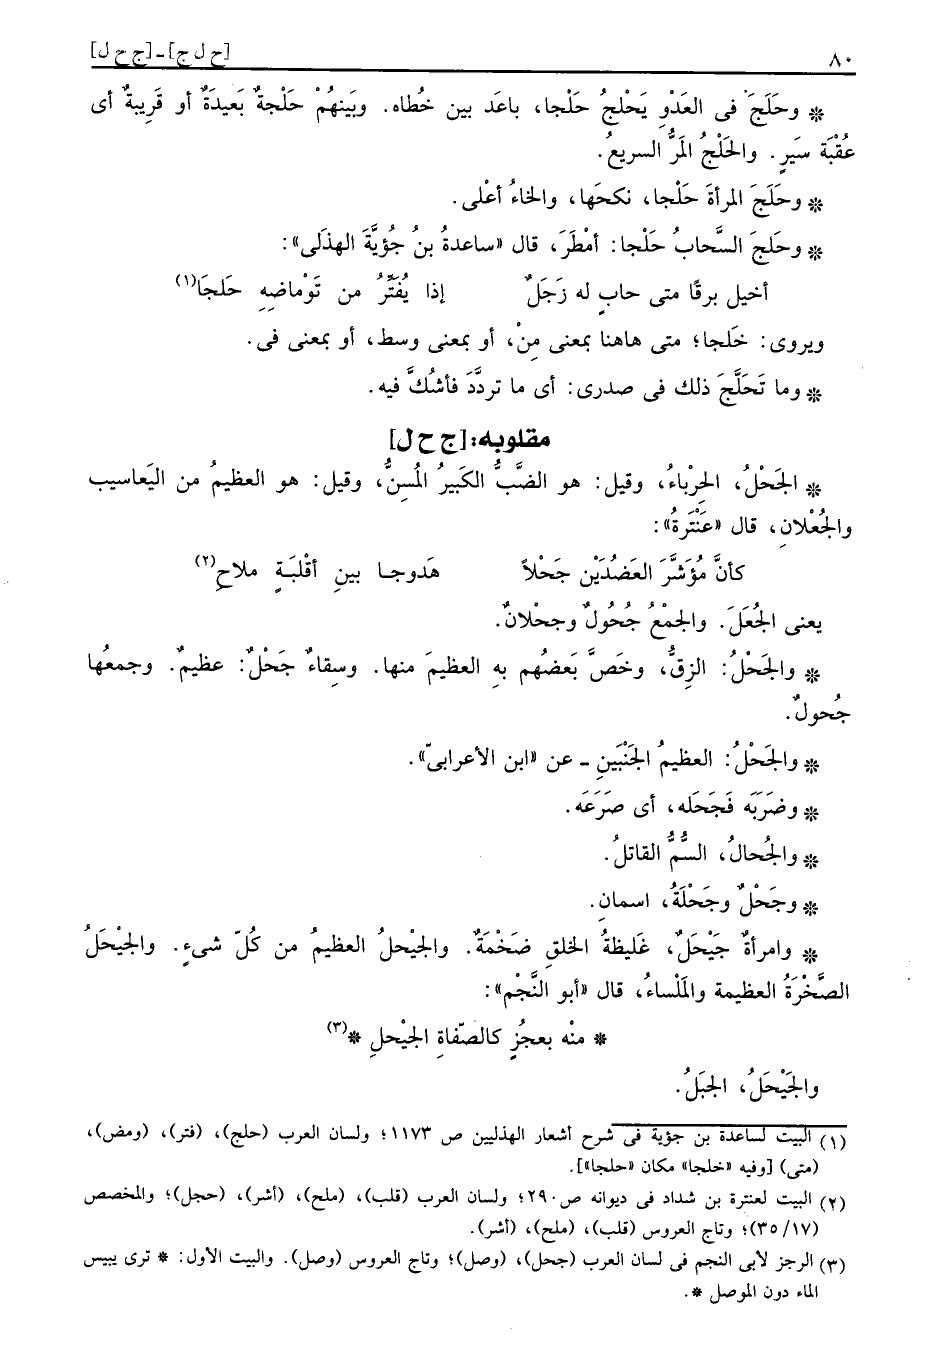 ٨٠ [ح ل ج] - [ج ح ل]
* وحَلَجَ فى العَدْوِ يَحْلجُ حَلْجا، باعَد بين خُطاه. وبَينهُمْ حَلْجةٌ بَعيدَةٌ أو قَريبةٌ أى
عُقْبَة سَيَرٍ. والحَلْجُ المَرُّ السريعُ.
* وحَلَجَ المرأةَ حَلْجا، نكحَها، والخاءُ أعْلى.
* وحَلجَ السَّحابُ حَلْجا: أمْطَرَ، قال «ساعدةُ بنُ جُؤيَّةَ الهذَلى»:
أخيل برقًا متى حابٍ له زَجَلٌ إذا يُفَتِّرُ من تَوْماضِهِ حَلجَا(١)
ويروى: خَلجا؛ متى هاهنا بمعنى مِنْ، أو بمعنى وسط، أو بمعنى فى.
* وما تَحَلَّجَ ذلك فى صدرى: أى ما تردَّدَ فأشُكَّ فيه.
مقلوبه: [ج ح ل]
* الجَحْلُ، الحِرْباءُ، وقيل: هو الضَّبُّ الكَبيرُ المُسِنُّ، وقيل: هو العظيمُ من اليَعاسيب
والجُعْلانِ، قال «عَنْتَرةُ»:
كأنَّ مُؤَشَّرَ العَضُدَيْن جَحْلاً هَدوجـا بينِ أقْلبَـةٍ ملاحِ(٢)
يعنى الجُعَلَ. والجمْعُ جُحُولٌ وجحْلانٌ.
* والجَحْلُ: الزِقُّ، وخَصَّ بَعضُهم بهِ العظيمَ منها. وسِقاءٌ جَحْلٌ: عظيمٌ. وجمعُها
جُحولٌ.
* والجَحْلُ: العظيمُ الجَنْبَينِ - عن «ابن الأعرابىّ».
* وضرَبَه فَجَحَله، أى صَرَعَه.
* والجُحالُ، السُّمُّ القاتلُ.
* وجَحْلٌ وجَحْلَةُ، اسمانِ.
* وامرأةٌ جَيْحَلٌ، غَليظةُ الخلقِ ضَخْمَةٌ. والجيْحلُ العظيمُ من كُلّ شىءٍ. والجيْحَلُ
الصَّخْرَةُ العظيمة والمَلْساءُ، قال «أبو النَّجْم»:
* منْه بعجُزٍ كالصّفاةِ الجيْحلِ *(٣)
والجَيْحَلُ، الجبَلُ.
(١) البيت لساعدة بن جؤية فى شرح أشعار الهذليين ص ١١٧٣؛ ولسان العرب (حلج)، (فتر)، (ومض)،
(متى) [وفيه «خلجا» مكان «حلجا»].
(٢) البيت لعنترة بن شداد فى ديوانه ص ٢٩٠؛ ولسان العرب (قلب)، (ملح)، (أشر)، (حجل)؛ والمخصص
(١٧/ ٣٥)؛ وتاج العروس (قلب)، (ملح)، (أشر).
(٣) الرجز لأبى النجم فى لسان العرب (جحل)، (وصل)؛ وتاج العروس (وصل). والبيت الأول: * ترى يبيس
الماء دون الموصل *.